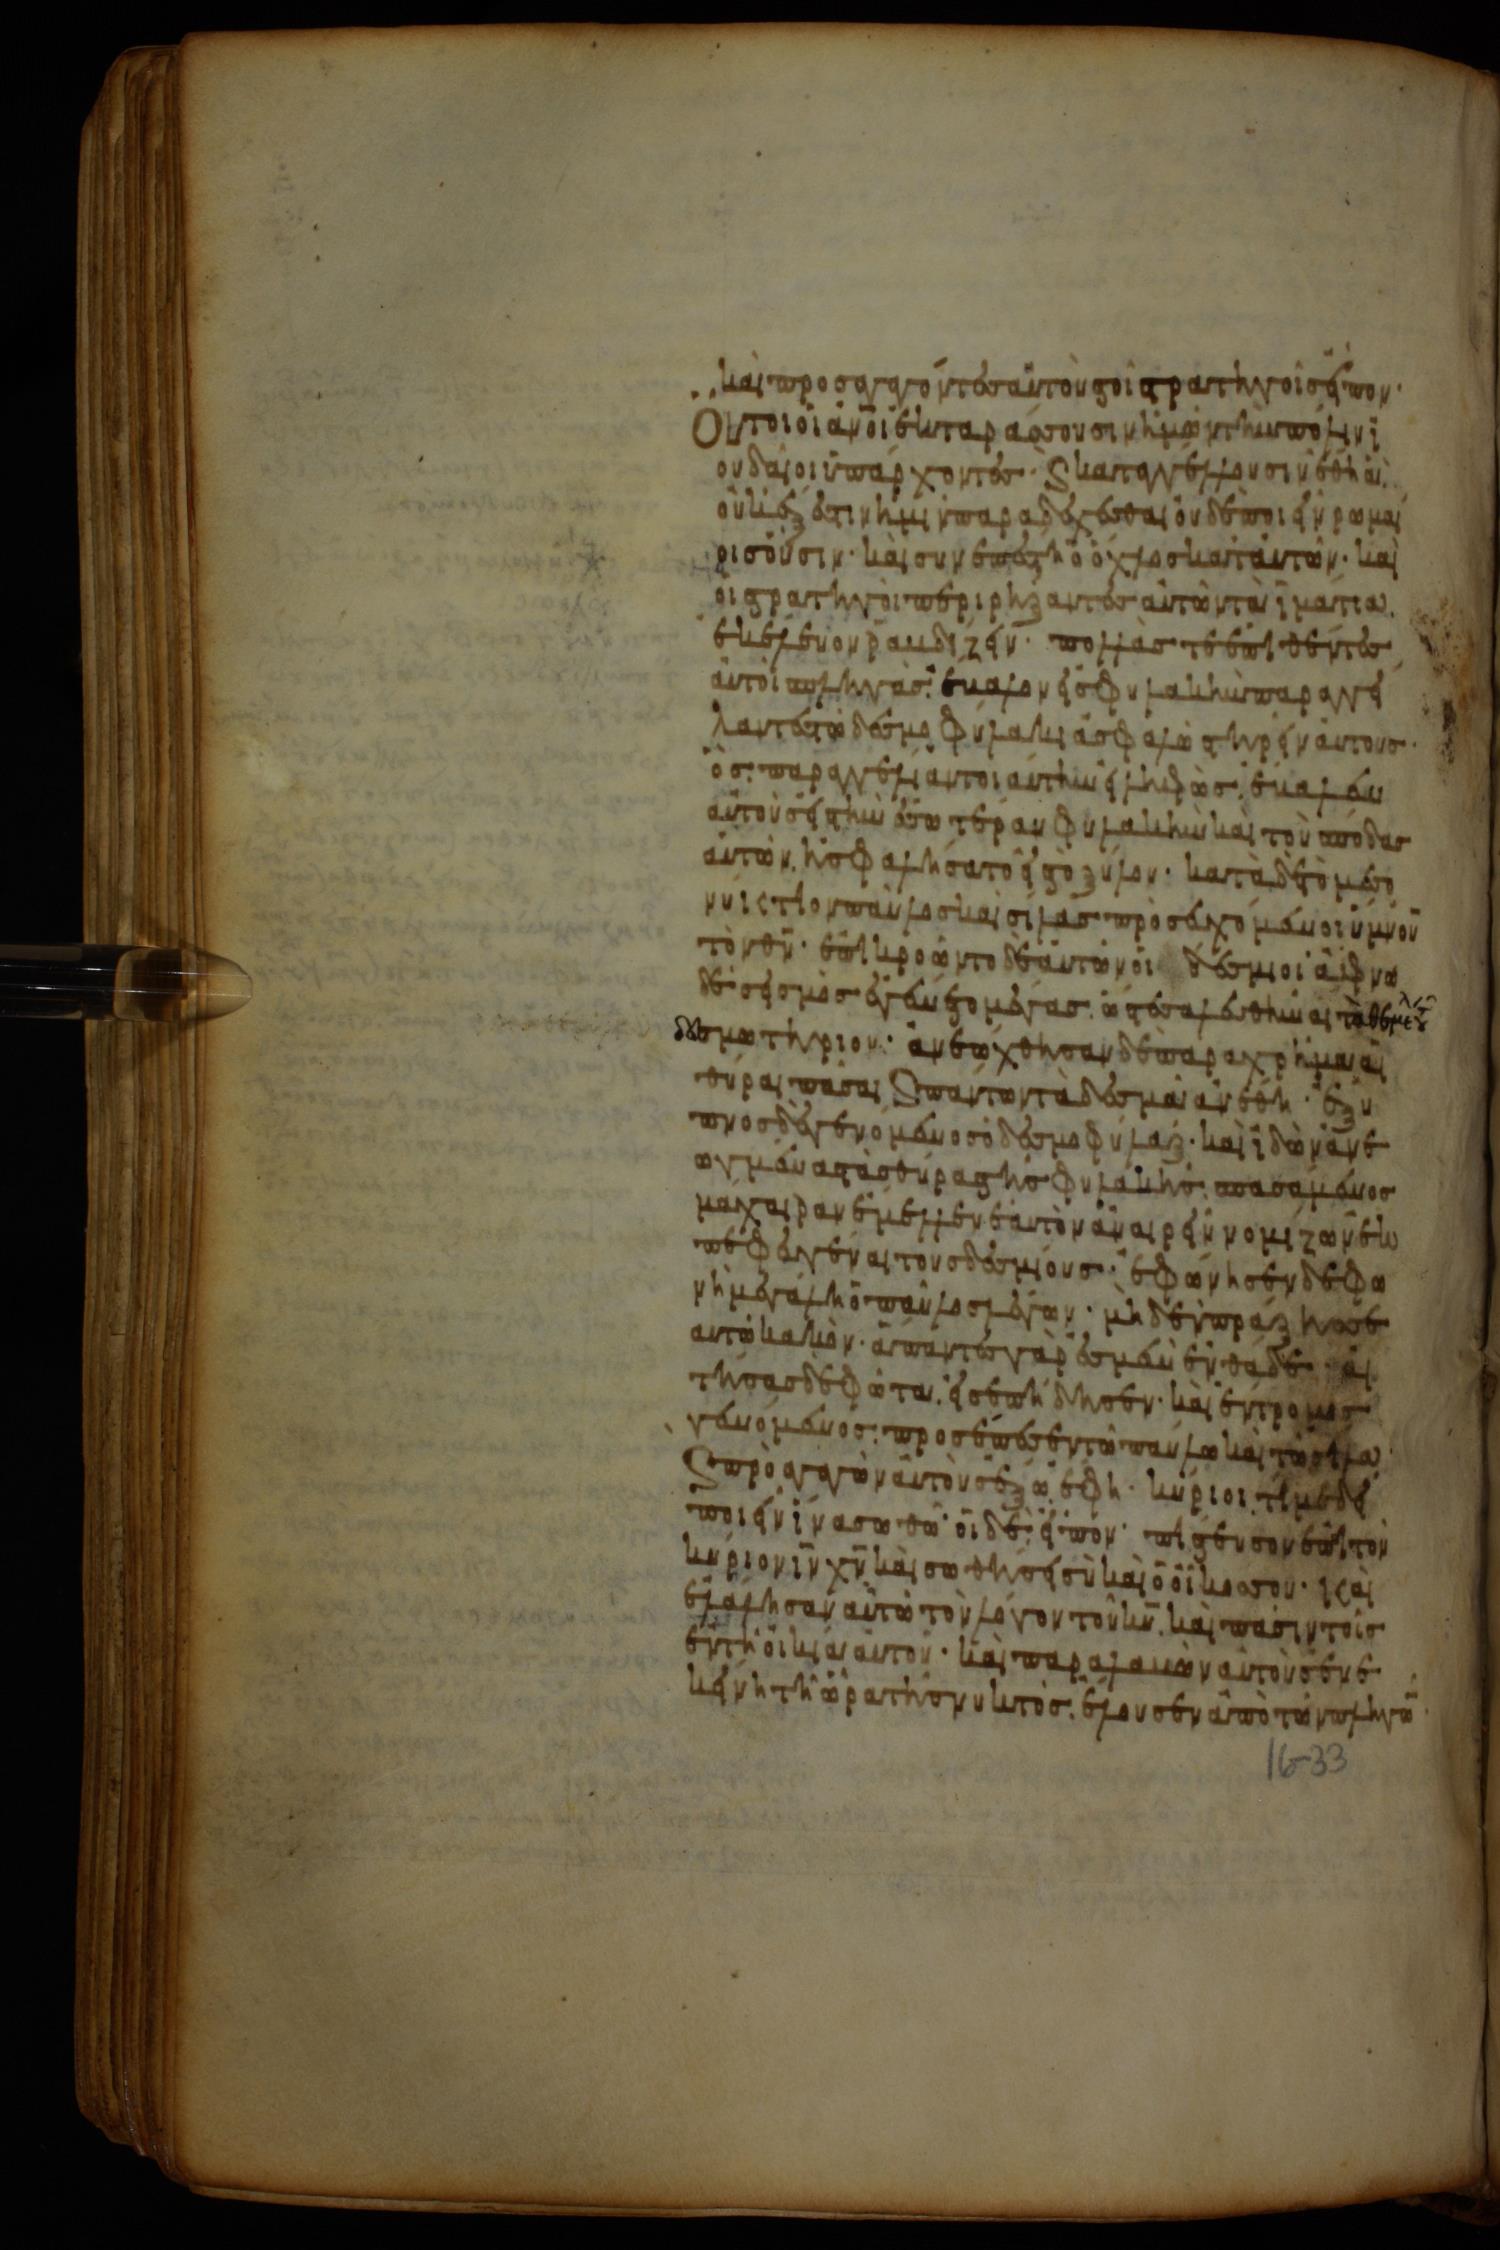 καὶ προσαγαγόντες αὐτοὺς τοῖς στρατηγοῖς εἶπον·
Οὗτοι οἱ ἄνοι ἐκταράσσουσιν ἡμῶν τὴν πόλιν ἰ
ουδαῖοι ὑπάρχοντες· καὶ καταγγέλλουσιν ἔθη ἃ
οὐκ ἔξεστιν ἡμῖν παραδέχεσθαι οὐδὲ ποιεῖν ρωμαί
οις οὖσιν· καὶ συνεπέστη ὁ ὄχλος κατ' αὐτῶν· καὶ
οἱ στρατηγοὶ περιρρήξαντες αὐτῶν τὰ ἱμάτια
ἐκέλευον ῥαβδίζειν· πολλάς τε ἐπιθέντες
αὐτοῖς πληγὰς ἔβαλον εἰς φυλακὴν παραγγεί
λαντες τῷ δεσμοφύλακι ἀσφαλῶς τηρεῖν αὐτούς·
ὃς παραγγελίαν τοιαύτην εἰληφὼς ἔβαλεν
αὐτοὺς εἰς τὴν ἐσωτέραν φυλακὴν καὶ τοὺς πόδας
αὐτῶν ἠσφαλίσατο εἰς τὸ ξύλον· κατὰ δὲ τὸ μεσο
νύκτιον παῦλος καὶ σίλας προσευχόμενοι ὕμνουν
τὸν θν· ἐπηκροῶντο δὲ αὐτῶν οἱ δέσμιοι ἄφνω
δὲ σεισμὸς ἐγένετο μέγας ὥστε σαλευθῆναι τὰ θεμέλια τοῦ
δεσμωτήριον· ἀνεώχθησαν δὲ παραχρῆμα αἱ
θύραι πᾶσαι καὶ πάντων τὰ δεσμὰ ἀνέθη· ἔξυ
πνος δὲ γενόμενος ὁ δεσμοφύλαξ· καὶ ἰδὼν ἀνε
ωγμένας τὰς θύρας τῆς φυλακῆς σπασάμενος
μάχαιραν ἔμελλεν ἑαυτὸν ἀναιρεῖν νομίζων ἐκ
πεφευγέναι τοὺς δεσμίους· ἐφώνησεν δὲ φω
νῇ μεγάλῃ ὁ παῦλος λέγων· μηδὲν πράξῃς σε
αυτῷ κακόν· ἅπαντες γάρ ἐσμεν ἐνθάδε· αἰ
τήσας δὲ φῶτα εἰσεπήδησεν· καὶ ἔντρομος
γενόμενος προσέπεσεν τῷ παύλῳ καὶ τῷ σίλᾳ
καὶ προαγαγὼν αὐτοὺς ἔξω ἔφη· κύριοι τί με δεῖ
ποιεῖν ἵνα σωθῶ οἱ δὲ εἶπον· πίστευσον ἐπὶ τὸν
κύριον ιν χν καὶ σωθήσει σὺ καὶ ὁ οἶκός σου· καὶ
ἐλάλησαν αὐτῷ τὸν λόγον τοῦ κυ καὶ πᾶσιν τοῖς
ἐν τῇ οἰκίᾳ αὐτοῦ· καὶ παραλαβὼν αὐτοὺς ἐν ἐ
κείνῃ τῇ ὥρᾳ τῆς νυκτὸς ἔλουσεν ἀπὸ τῶν πληγῶν
16-33